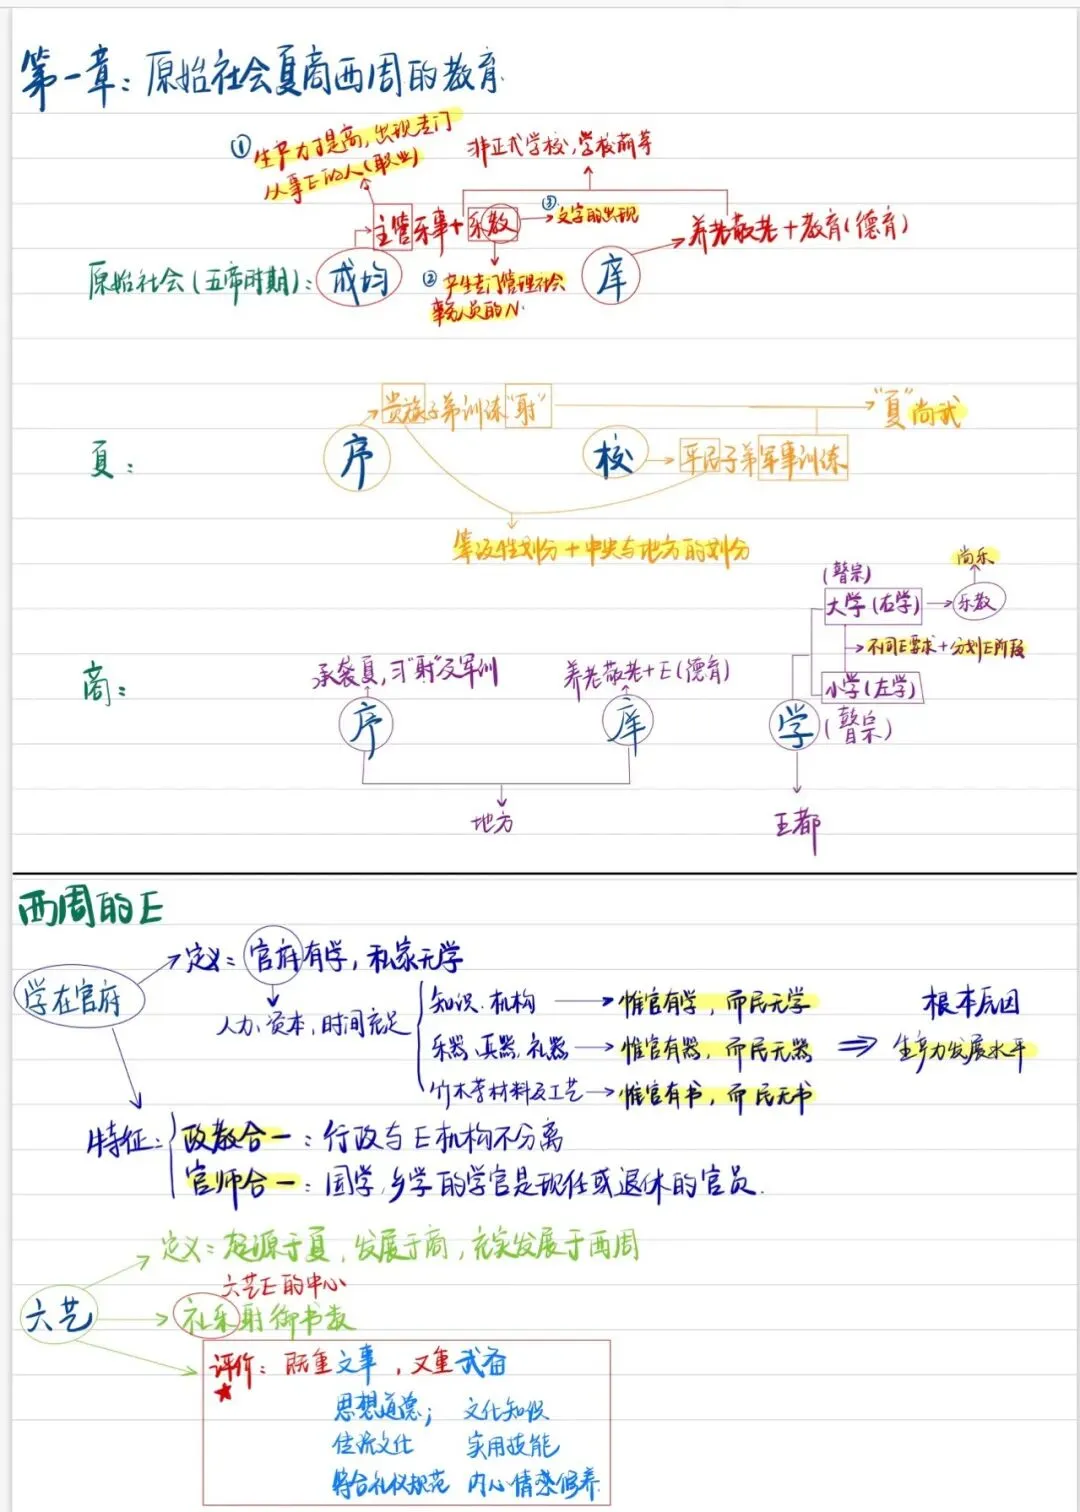 第一章：原始社会夏商西周的教育
① 生产力提高，出现专门
从事E的人(职业)
非正式学校，学校萌芽
主管乐事+乐教
③ 文字的出现
养老敬老+教育(德育)
原始社会(五帝时期)：成均
② 产生专门管理社会
事务人员的N.
庠
贵族子弟训练"射"
"夏"尚武
夏：
序
校
平民子弟军事训练
等级性划分+中央与地方的划分
商：
承袭夏，习"射"及军训
序
养老敬老+E(德育)
庠
地方
(瞽宗)
大学(右学)
乐教
尚乐
不同E要求+分划E阶段
小学(左学)
学
(瞽宗)
王都
西周的E
学在官府
定义：官府有学，私家无学
人力、资本，时间充足
知识、机构
惟官有学，而民无学
乐器、兵器、礼器
惟官有器，而民无器
竹木等材料及工艺
惟官有书，而民无书
根本原因
生产力发展水平
特征：
政教合一：行政与E机构不分离
官师合一：国学、乡学的学官是现任或退休的官员.
六艺
定义：起源于夏，发展于商，充实发展于西周
六艺E的中心
礼乐射御书数
评价：既重文事，又重武备
思想道德； 文化知识
传统文化 实用技能
符合礼仪规范 内心情感修养